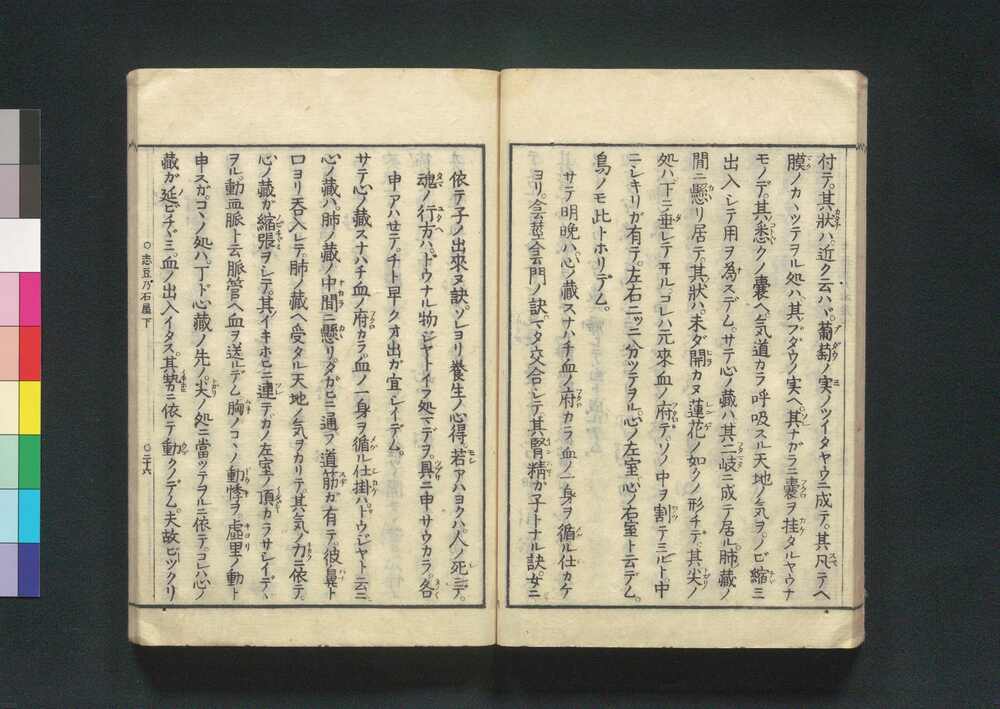 付テ。其狀ハ。近ク云ハヾ。葡萄ノ実ノツイタヤウニ成テ。其凡テヘ
膜ノカヽツテヲル処ハ。其ブダウノ実ヘ。其ナガラニ囊ヲ挂タルヤウナ
モノデ。其悉クノ囊ヘ。気道カラ呼吸スル天地ノ気ヲ。ノビ縮ミ
出入シテ用ヲ為スデム。サテ心ノ藏ハ。其二岐ニ成テ居ル。肺藏ノ
間ニ懸リ居テ。其狀ハ。未ダ開カヌ蓮花ノ如クノ形チデ。其尖ノ
処ハ下ニ垂レテ
コレハ元來血ノ府デ。ソノ中ヲ割テミルト。中
ニシキリガ有テ。左右ニツニ分ツテヲル。心ノ左室。心ノ右室ト云デム。
サテ明晩ハ。心ノ藏スナハチ血ノ府カラ。血ノ一身ヲ循ル仕カケ
ヨリ
ノ訣。マタ交合シテ其腎精ガ子トナル訣。女ニ
依テ子ノ出來ヌ訣。ソレヨリ養生ノ心得。若アハヨクハ。人ノ死ニデ。
魂ノ行方ハ。ドウナル物ジヤトイフ処マデヲ。具ニ申サウカラ。各
申アハセテ。チト早クオ出ガ宜シイデム。
サテ心ノ藏スナハチ血ノ府カラ。血ノ一身ヲ循ル仕掛ハ。ドウジヤト云ニ
心ノ藏ハ。肺ノ藏ノ中間ニ懸リ。タガヒニ通フ道筋ガ有テ。彼鼻ト
口ヨリ吞入レテ。肺ノ藏ヘ受タル天地ノ気ヲカリテ。其気ノ力ニ依テ。
心ノ藏ガ縮張ヲシテ。其イキホヒニ連テ。カノ左室ノ頂カラサシイデヽ
ヲル。動血脈ト云脈管ヘ血ヲ送ルデム。胸ノコヽノ動悸ヲ。虛里ノ動ト
申スガ。コヽノ処ハ。丁ド心藏ノ先ノ。尖ノ処ニ當ツテヲルニ依テ。コレハ心ノ
藏ガ延ビチヾミ。血ノ出入イタス。其勢ニ依テ動クノデム。夫故ビツクリ
志豆乃石屋下
二十六